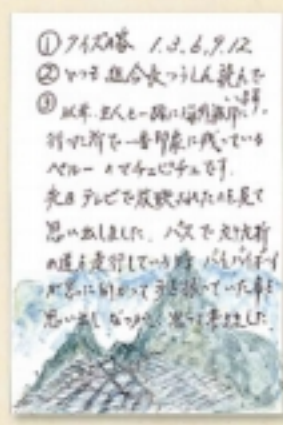 ①クイズの答 1.3.6.9.12
②いつも組合長つうしん読んで
います。
③以前、主人と一緒に海外旅行に
行った所で一番印象に残っている
ペルーのマチュピチュです。
先日テレビで放映されたのを見て
思い出しました。バスで九十九折
の道を走行している時 バイバイボーイ
が に向かって 手を振っていた事を
思い出し なつかしく思って来ました